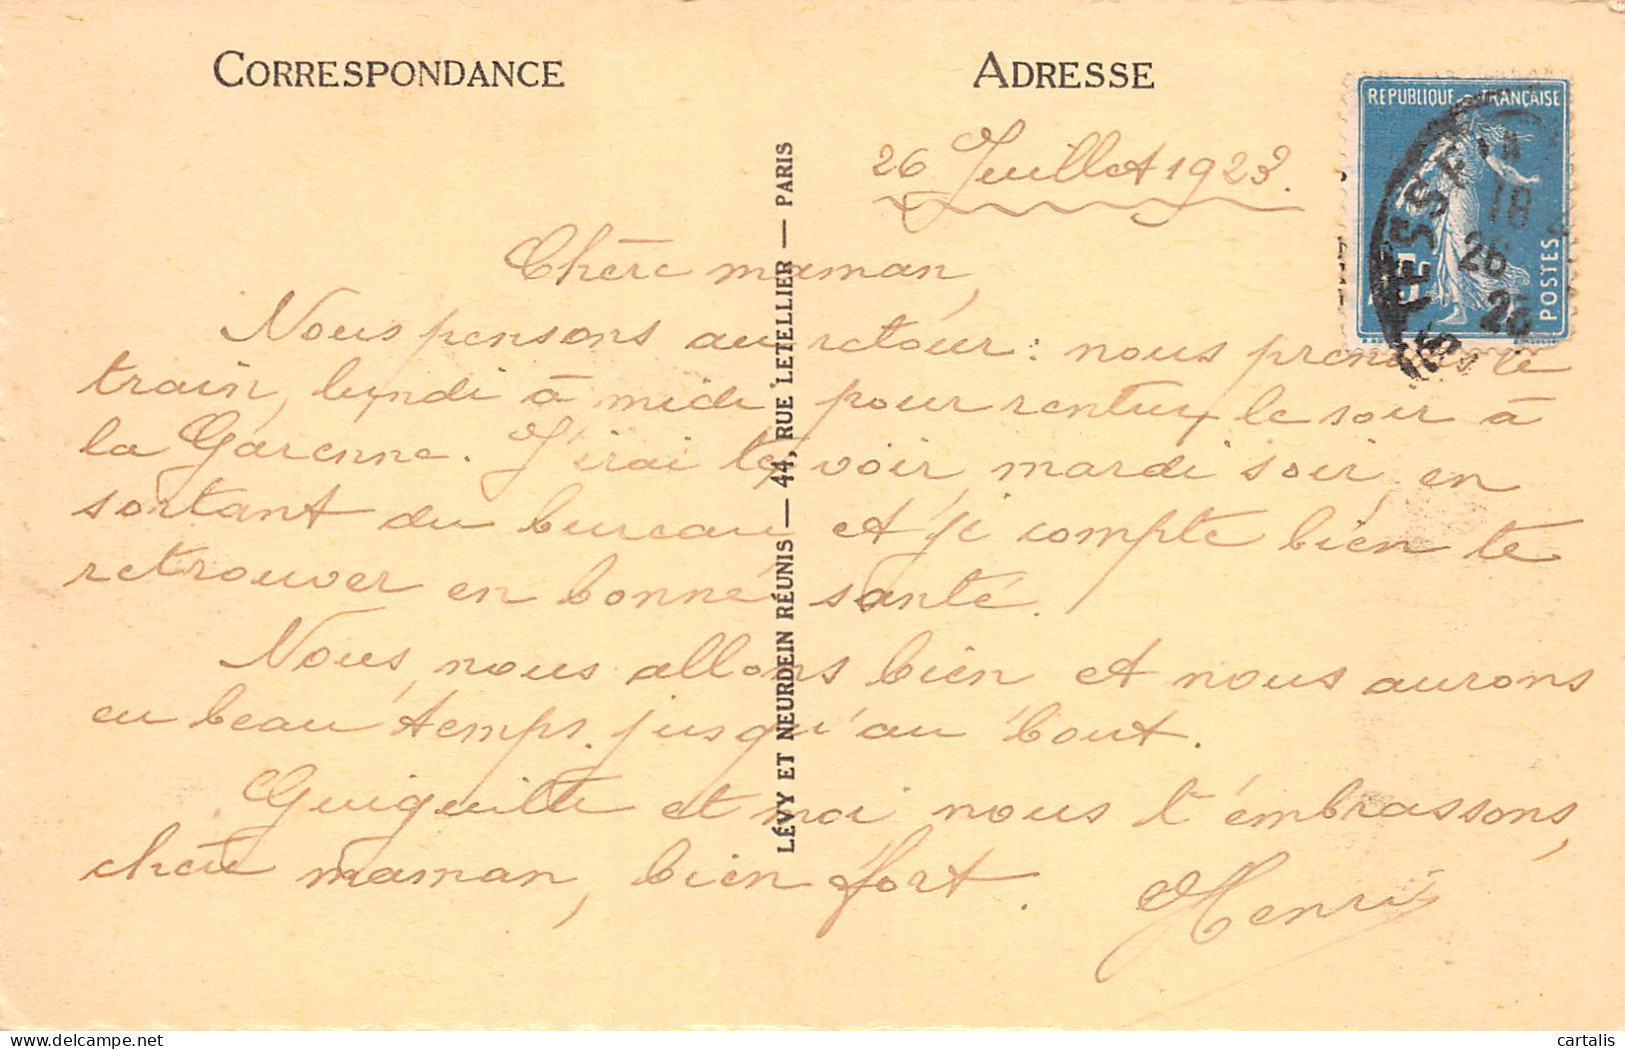 CORRESPONDANCE
ADRESSE
REPUBLIQUE FRANÇAISE
POSTES
18
26
26 Juillet 1923.
Chère maman,
Nous pensons au retour : nous prenons le
train, lundi à midi pour rentrer le soir à
la Garenne. J'irai te voir mardi soir, en
sortant du bureau et je compte bien te
retrouver en bonne santé.
Nous, nous allons bien et nous aurons
eu beau temps jusqu'au bout.
Guiguitte et moi nous t'embrassons,
chère maman, bien fort.
Henri
LÉVY ET NEURDEIN RÉUNIS — 44, RUE LETELLIER — PARIS
cartalis